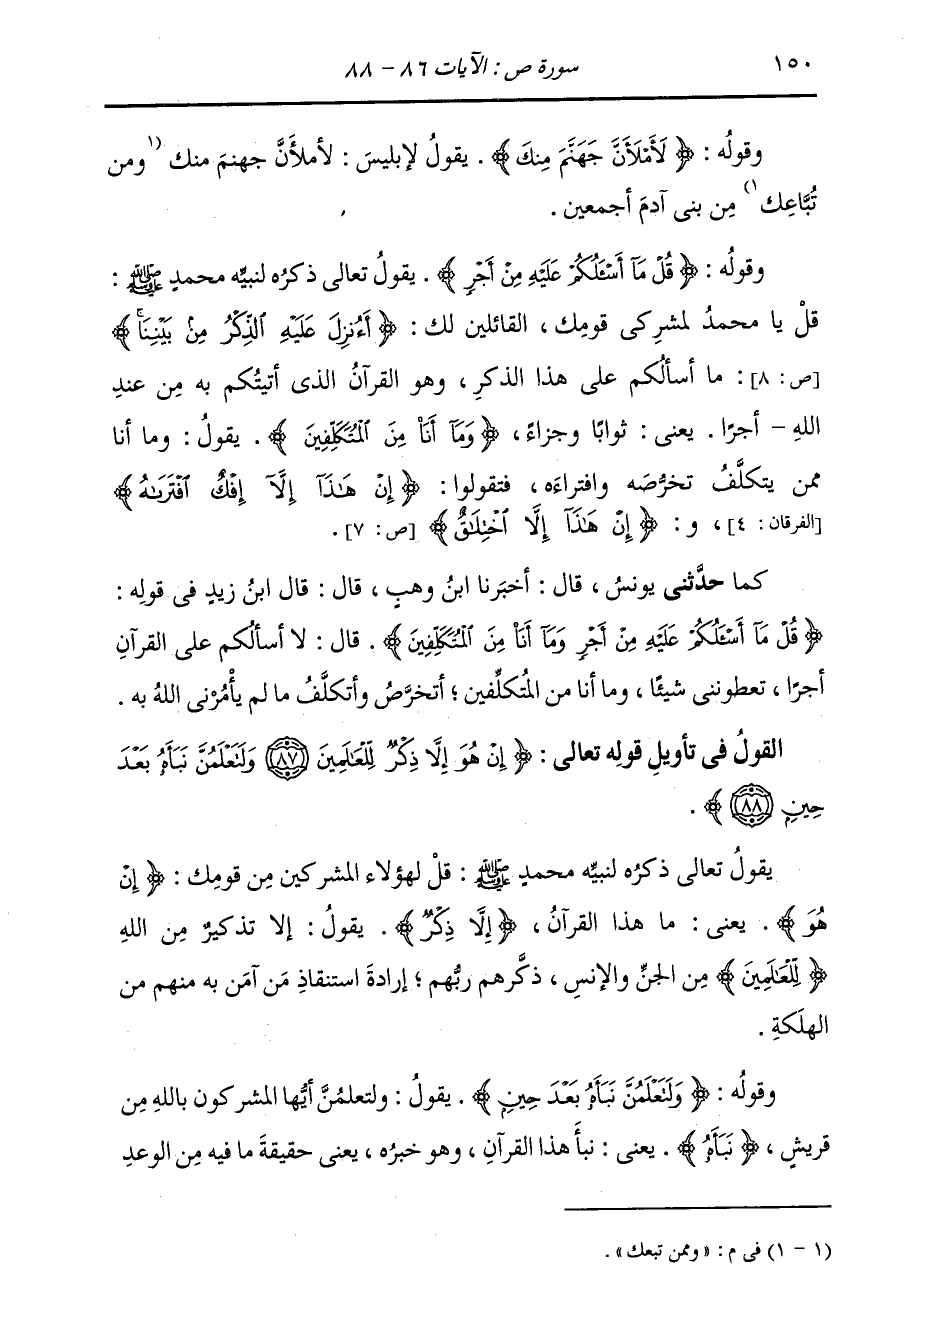 ١٥٠
سورة ص : الآيات ٨٦ - ٨٨
وقولُه : ﴿ لَأَمْلَأَنَّ جَهَنَّمَ مِنكَ ﴾ . يقولُ لإبليسَ : لأملأَنَّ جهنمَ منك (١ ومن
تُبَّاعِك ١) مِن بنى آدمَ أجمعين .
وقولُه : ﴿ قُلْ مَآ أَسْـَٔلُكُمْ عَلَيْهِ مِنْ أَجْرٍ ﴾ . يقولُ تعالى ذكرُه لنبيِّه محمدٍ ﷺ :
قلْ يا محمدُ لمشرِكى قومِك ، القائلين لك : ﴿ أَءُنزِلَ عَلَيْهِ ٱلذِّكْرُ مِنۢ بَيْنِنَاۚ ﴾
[ص : ٨] : ما أسألُكم على هذا الذكرِ ، وهو القرآنُ الذى أتيتُكم به مِن عندِ
اللهِ - أجرًا . يعنى : ثوابًا وجزاءً ، ﴿ وَمَآ أَنَا۠ مِنَ ٱلْمُتَكَلِّفِينَ ﴾ . يقولُ : وما أنا
ممن يتكلَّفُ تخرُّصَه وافتراءَه ، فتقولوا : ﴿ إِنْ هَـٰذَآ إِلَّآ إِفْكٌ ٱفْتَرَىٰهُ ﴾
[الفرقان : ٤] ، و : ﴿ إِنْ هَـٰذَآ إِلَّا ٱخْتِلَـٰقٌ ﴾ [ص : ٧] .
كما حدَّثنى يونسُ ، قال : أخبَرنا ابنُ وهبٍ ، قال : قال ابنُ زيدٍ فى قولِه :
﴿ قُلْ مَآ أَسْـَٔلُكُمْ عَلَيْهِ مِنْ أَجْرٍ وَمَآ أَنَا۠ مِنَ ٱلْمُتَكَلِّفِينَ ﴾ . قال : لا أسألُكم على القرآنِ
أجرًا ، تعطوننى شيئًا ، وما أنا من المُتكلِّفين ؛ أتخرَّصُ وأتكلَّفُ ما لم يأْمُرْنى اللهُ به .
القولُ فى تأويلِ قولِه تعالى : ﴿ إِنْ هُوَ إِلَّا ذِكْرٌ لِّلْعَـٰلَمِينَ ٨٧ وَلَتَعْلَمُنَّ نَبَأَهُۥ بَعْدَ
حِينٍۭ ٨٨ ﴾ .
يقولُ تعالى ذكرُه لنبيِّه محمدٍ ﷺ : قلْ لهؤلاء المشركين مِن قومِك : ﴿ إِنْ
هُوَ ﴾ . يعنى : ما هذا القرآنُ ، ﴿ إِلَّا ذِكْرٌ ﴾ . يقولُ : إلا تذكيرٌ مِن اللهِ
﴿ لِّلْعَـٰلَمِينَ ﴾ مِن الجنِّ والإنسِ ، ذكَّرهم ربُّهم ؛ إرادةَ استنقاذِ مَن آمَن به منهم من
الهلَكةِ .
وقولُه : ﴿ وَلَتَعْلَمُنَّ نَبَأَهُۥ بَعْدَ حِينٍۭ ﴾ . يقولُ : ولتعلمُنَّ أيُّها المشركون باللهِ مِن
قريشٍ ، ﴿ نَبَأَهُۥ ﴾ . يعنى : نبأَ هذا القرآنِ ، وهو خبرُه ، يعنى حقيقةَ ما فيه مِن الوعدِ
(١ - ١) فى م : « وممن تبعك » .